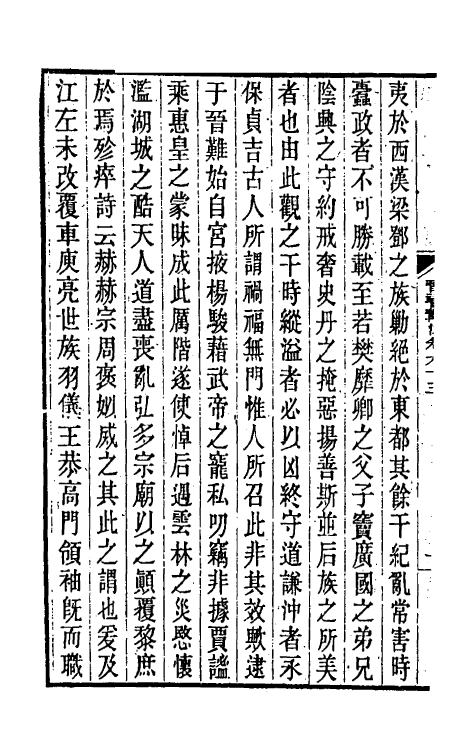 夷於西漢梁鄧之族勦絕於東都其餘干紀亂常害時
蠹政者不可勝載至若樊靡卿之父子竇廣國之弟兄
陰興之守約戒奢史丹之掩惡揚善斯並后族之所美
者也由此觀之干時縱溢者必以凶終守道謙沖者永
保貞吉古人所謂禍福無門惟人所召此非其效歟逮
于晉難始自宮掖楊駿藉武帝之寵私叨竊非據賈謐
乘惠皇之蒙昧成此厲階遂使悼后遇雲林之災愍懷
濫湖城之酷天人道盡喪亂弘多宗廟以之顛覆黎庶
於焉殄瘁詩云赫赫宗周褒姒烕之其此之謂也爰及
江左未改覆車庾亮世族羽儀王恭高門領袖旣而職